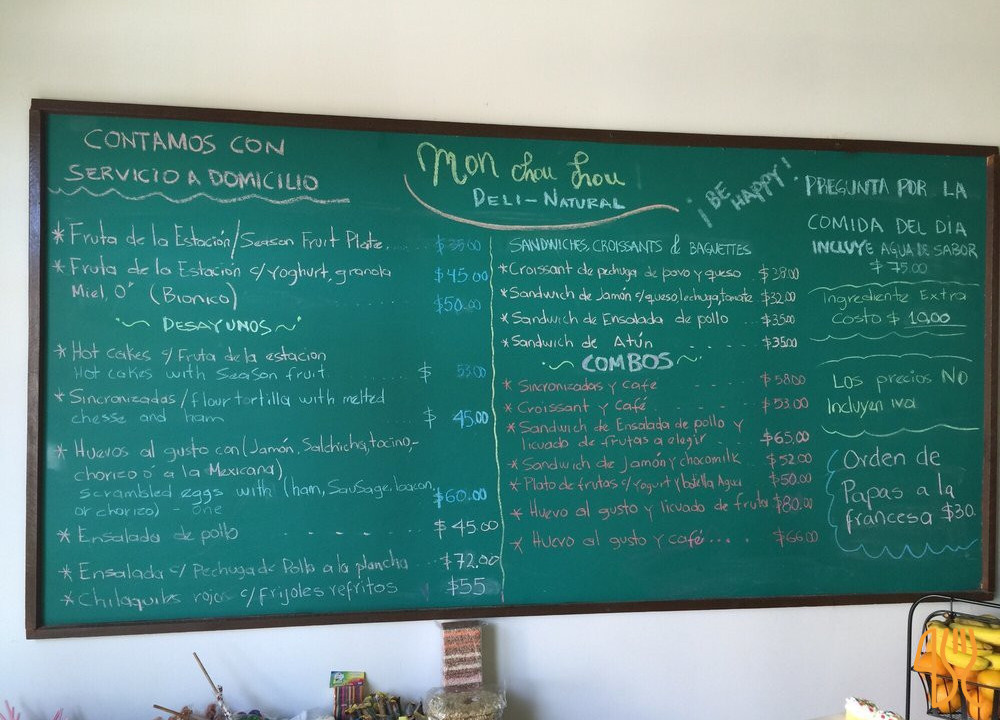 CONTAMOS CON
SERVICIO A DOMICILIO
* Fruta de la Estación/Season Fruit Plate.. $35.00
* Fruta de la Estación c/yoghurt, granola $45.00
Miel, O' (Bionico) $50.00
~ DESAYUNOS ~
* Hot cakes c/Fruta de la estacion
Hot cakes with Season fruit ....... $ 55.00
* Sincronizadas/flour tortilla with melted
chesse and ham ....... $ 45.00
* Huevos al gusto con (Jamón, Salchicha, tocino-
chorico ó a la Mexicana)
scrambled eggs with (ham, Sausage, bacon,
or chorico) - one $60.00
* Ensalada de pollo ....... $45.00
* Ensalada c/ Pechuga de Pollo a la plancha ... $72.00
* Chilaquiles rojos c/frijoles refritos $55
Mon chou chou
DELI-NATURAL
¡BE
HAPPY!
SANDWICHES, CROISSANTS & BAGUETTES
* Croissant de pechuga de pavo y queso . $38.00
* Sandwich de Jamón c/queso lechuga, tomate $32.00
* Sandwich de Ensalada de pollo $35.00
* Sandwich de Atún ..... $35.00
~ COMBOS ~
* Sincronizadas y café .... $58.00
* Croissant y Café ..... $53.00
* Sandwich de Ensalada de pollo y
licuado de frutas a elegir ..... $65.00
* Sandwich de Jamón y chocomilk $52.00
* Plato de frutas c/Yogurt y botella Agua $50.00
* Huevo al gusto y licuado de fruta $80.00
* Huevo al gusto y café.... $66.00
PREGUNTA POR LA
COMIDA DEL DIA
INCLUYE AGUA DE SABOR
$ 75.00
Ingrediente Extra
Costo $ 10.00
Los precios NO
Incluyen iva
Orden de
Papas a la
francesa $30.